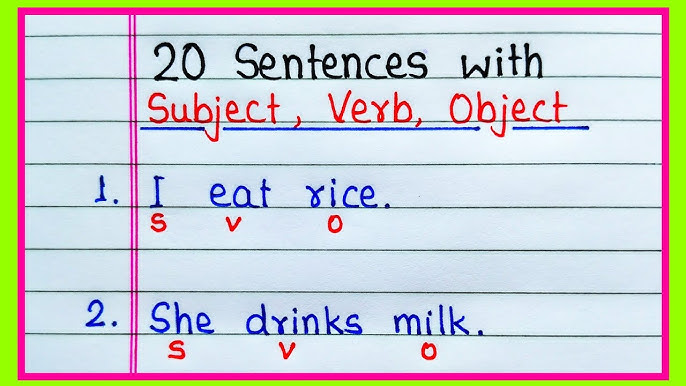 20 Sentences with
Subject, Verb, Object
1. I eat rice.
S V O
2. She drinks milk.
S V O